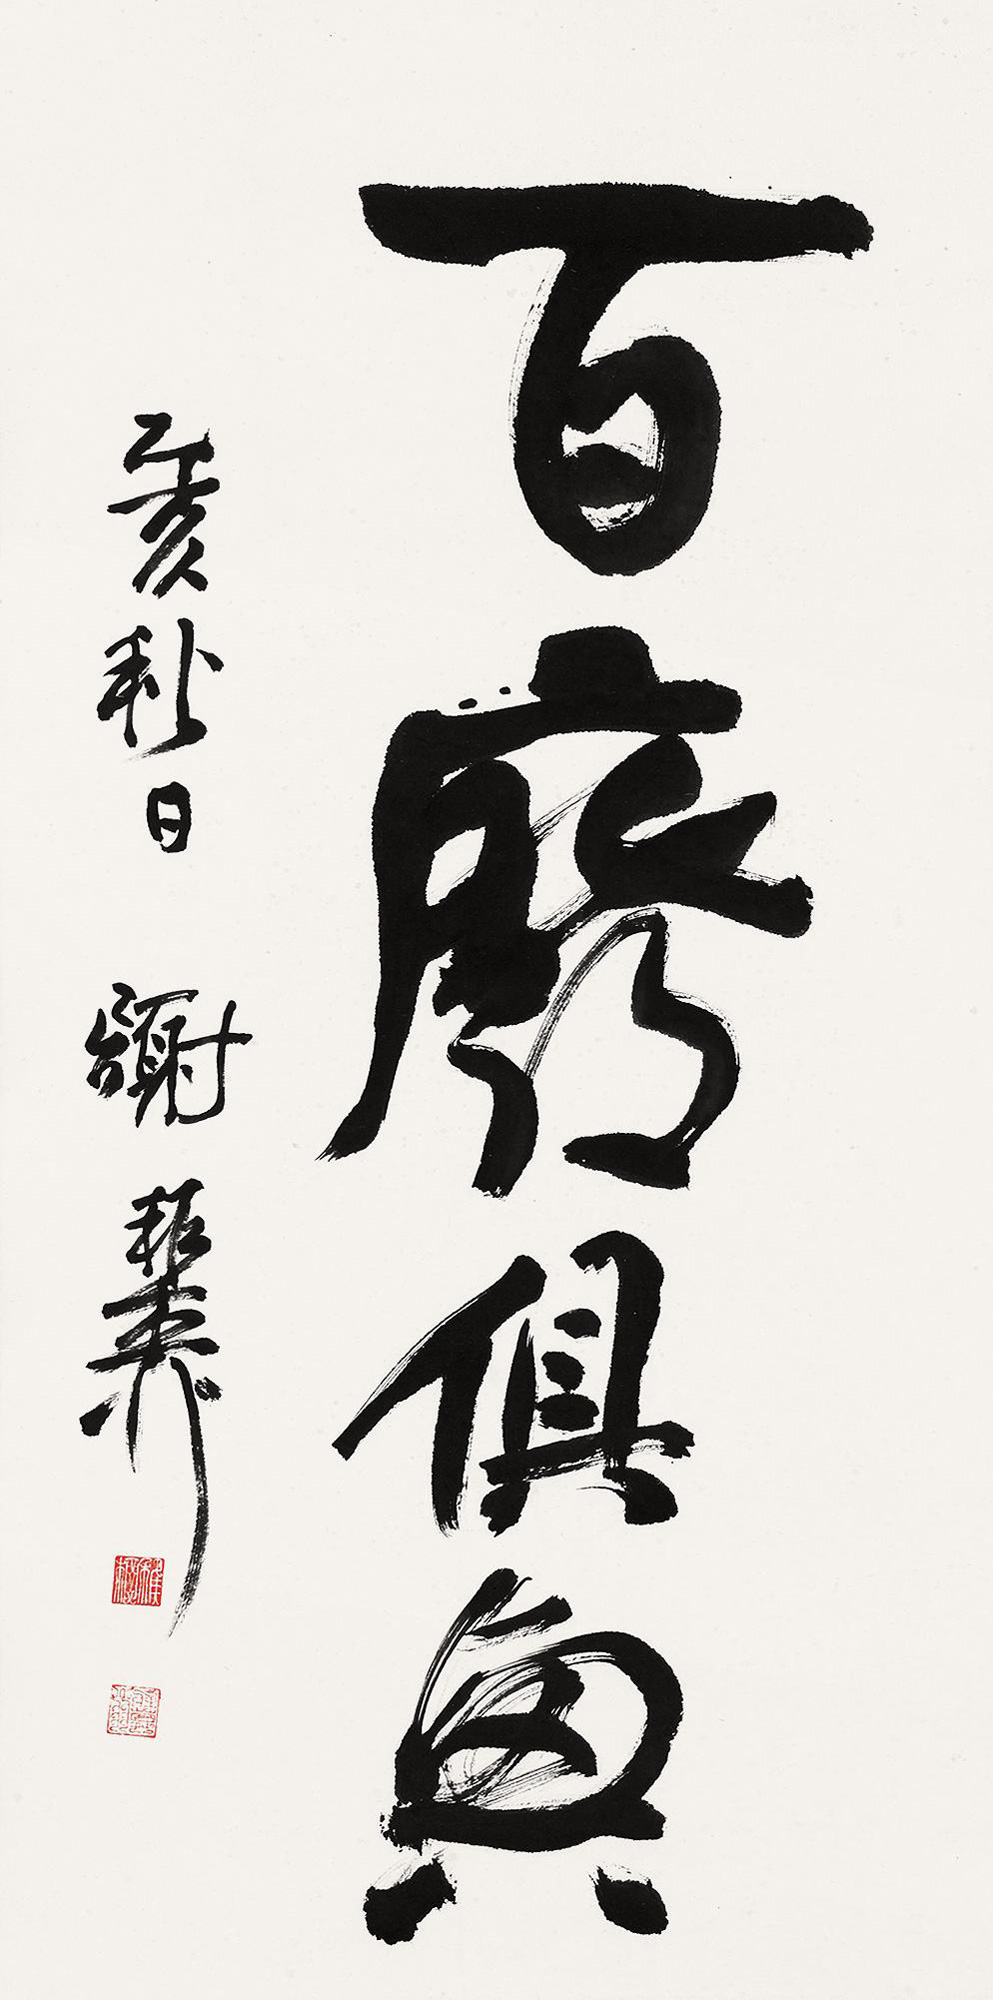 百廢俱興
乙亥秋日 謝稚柳
稚柳